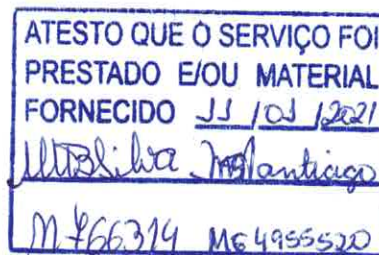 ATESTO QUE O SERVIÇO FOI
PRESTADO E/OU MATERIAL
FORNECIDO 11 / 01 / 2021
MTBSilva Santiago
M.766.314 MG4955520